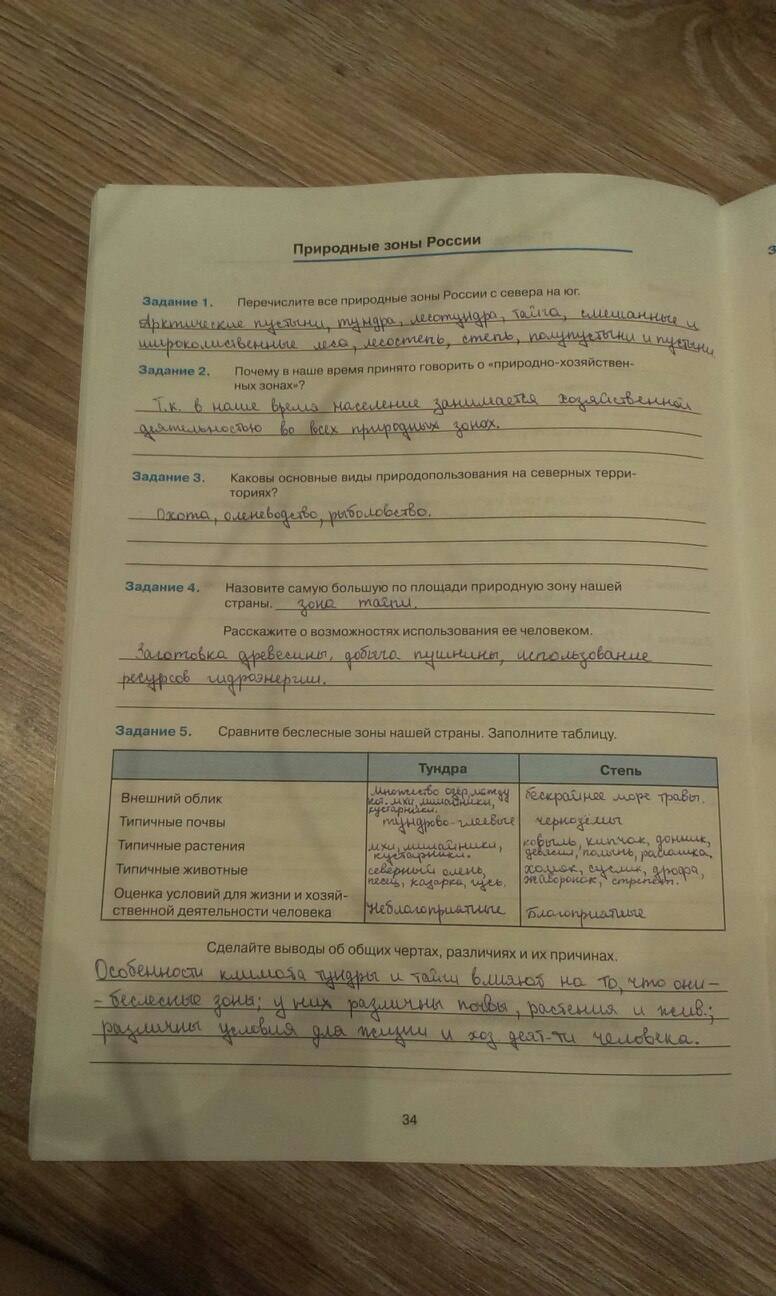 Природные зоны России
Задание 1. Перечислите все природные зоны России с севера на юг.
Арктические пустыни, тундра, лесотундра, тайга, смешанные и
широколиственные леса, лесостепь, степь, полупустыни и пустыни
Задание 2. Почему в наше время принято говорить о «природно-хозяйствен-
ных зонах»?
Т.к. в наше время население занимается хозяйственной
деятельностью во всех природных зонах.
Задание 3. Каковы основные виды природопользования на северных терри-
ториях?
Охота, оленеводство, рыболовство.
Задание 4. Назовите самую большую по площади природную зону нашей
страны. зона тайги.
Расскажите о возможностях использования ее человеком.
Заготовка древесины, добыча пушнины, использование
ресурсов гидроэнергии.
Задание 5. Сравните беслесные зоны нашей страны. Заполните таблицу.
Тундра Степь
Внешний облик множество озер, между
кот. мхи, лишайники,
кустарники. бескрайнее море травы.
Типичные почвы тундрово-глеевые чернозёмы
Типичные растения мхи, лишайники,
кустарники. ковыль, кипчак, донник,
девясил, полынь, ромашка.
Типичные животные северный олень,
песец, казарка, гусь. хомяк, суслик, дрофа,
жаворонок, стрепет.
Оценка условий для жизни и хозяй-
ственной деятельности человека Неблагоприятные Благоприятные
Сделайте выводы об общих чертах, различиях и их причинах.
Особенности климата тундры и тайги влияют на то, что они -
- беслесные зоны; у них различны почвы, растения и жив.;
различны условия для жизни и хоз деят-ти человека.
34